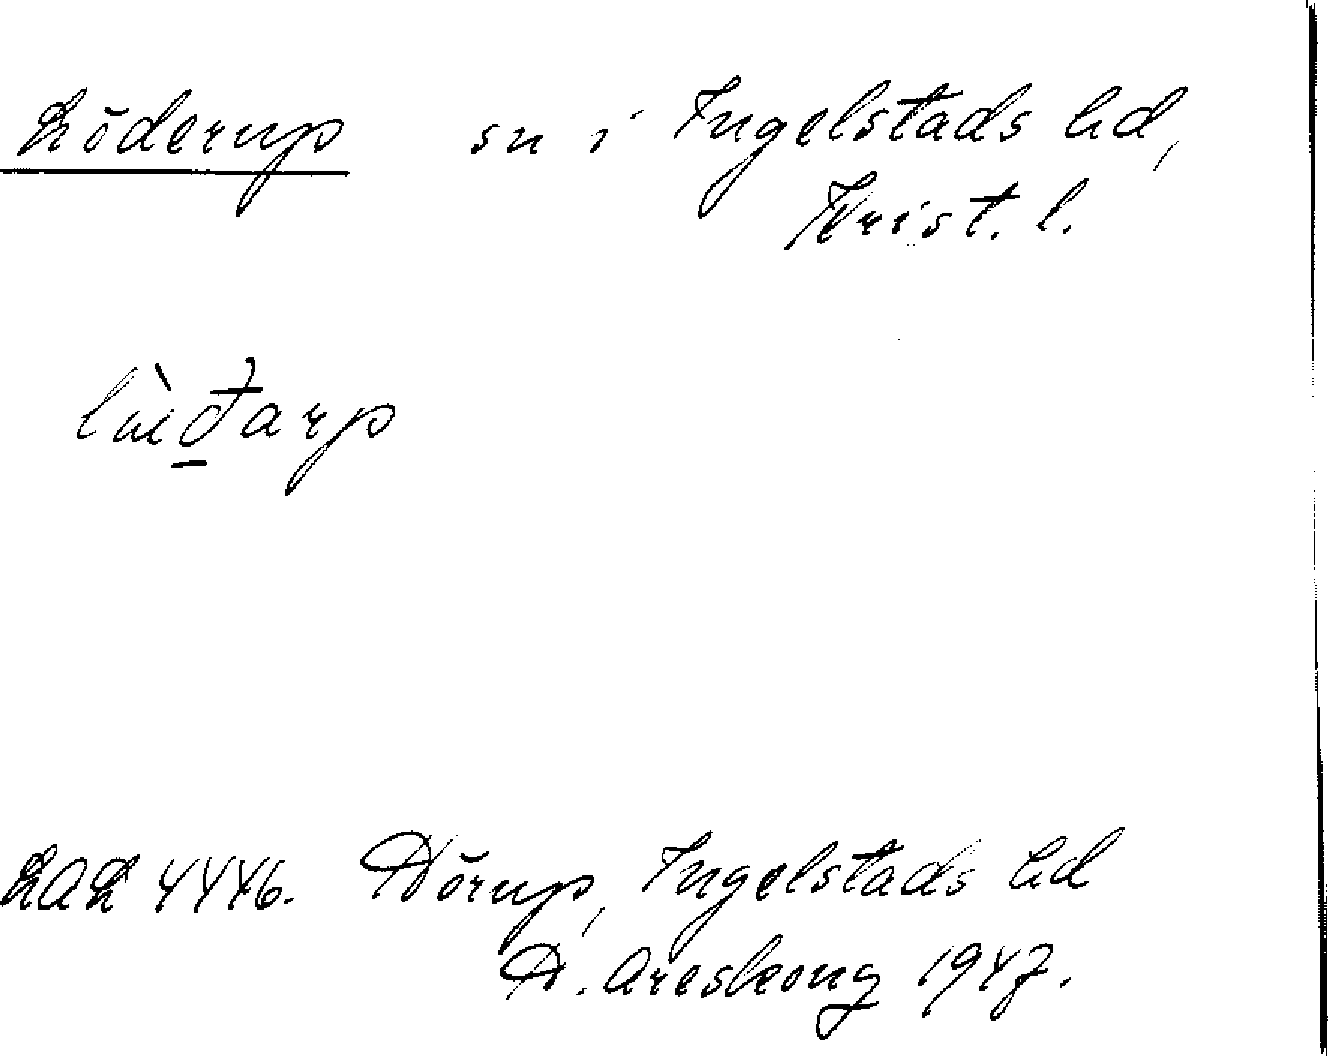 Löderup sn i Ingelstads hd,
Krist. l.
lùðarp
LAL 4446. Hörup, Ingelstads hd
H. Areskoug 1947.